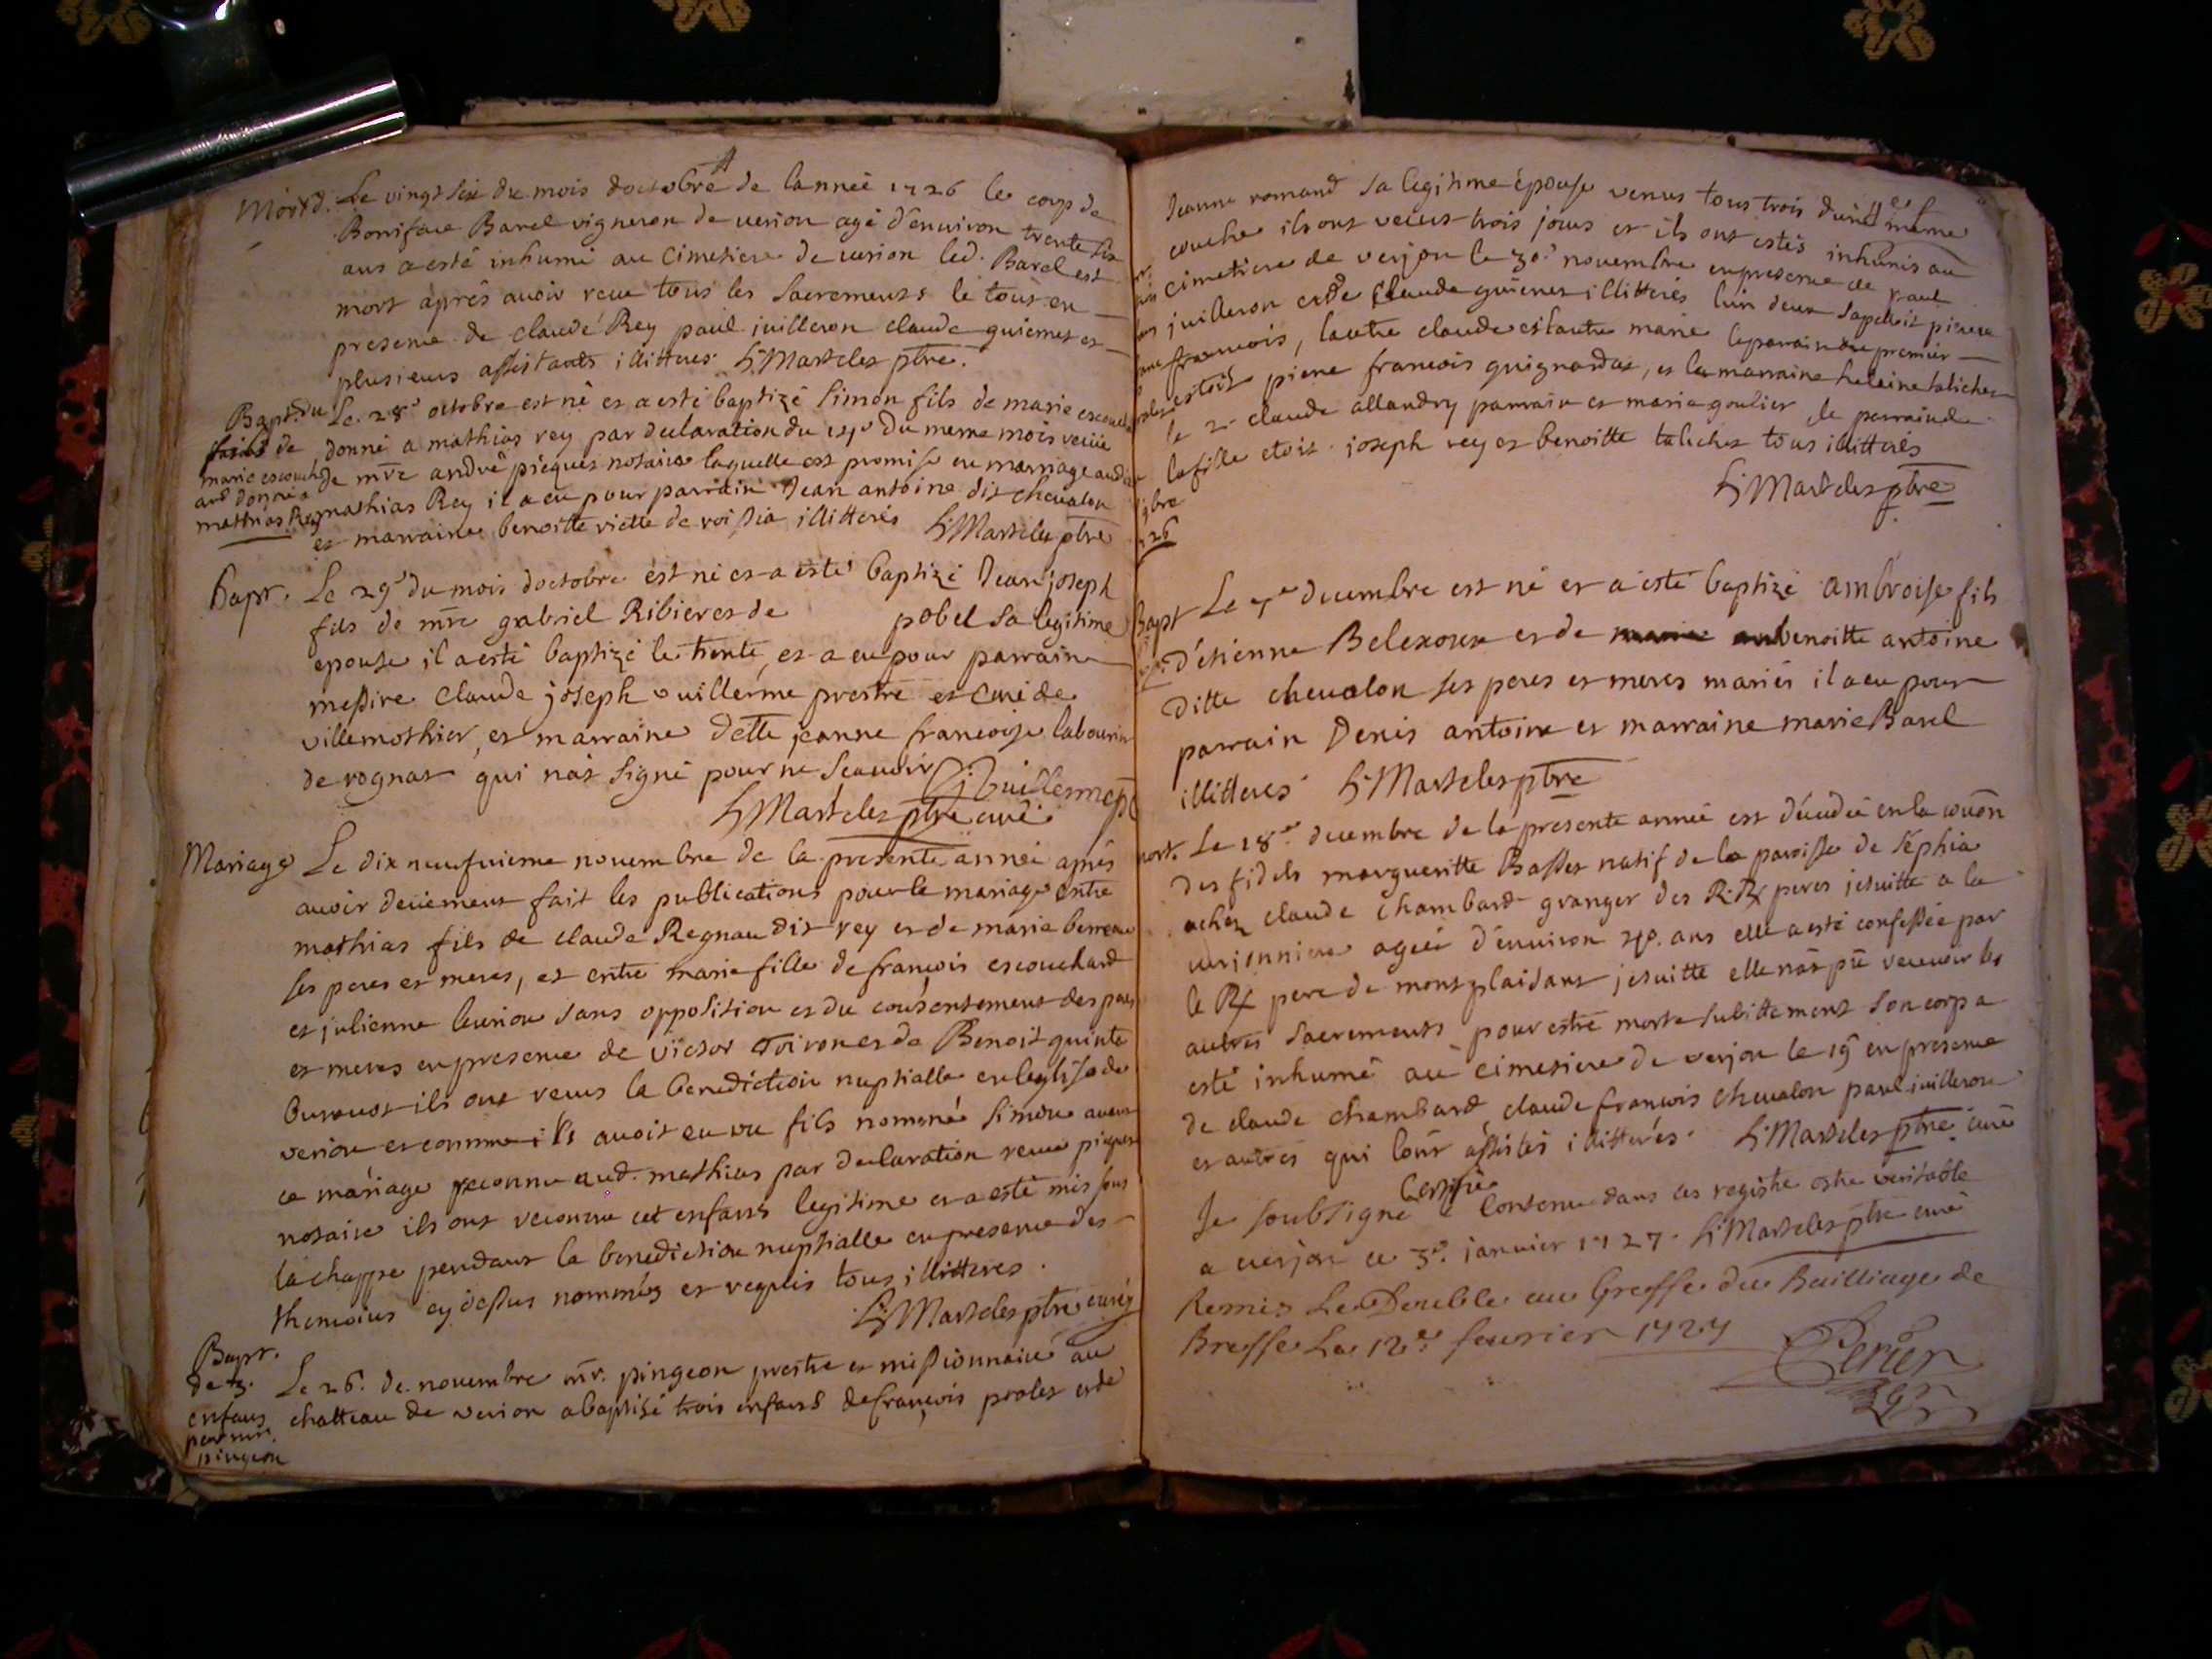 Mortd. Le vingt six du mois doctobre de lanneé 1726 le corp de
Boniface Barel vigneron de verion agé d'environ trente six
ans a esté inhumé au Cimetiere de verion led. Barel est
mort aprés avoir receu tous les Sacrements le tout en
presence de claude Rey paul juilleron claude guienet et
plusieurs assistants illitteres. Martelet ptre.
Bapt. du
de
marie escouchard
donné a
mathias Rey
Le 28e octobre est né et a esté baptizé Simon fils de marie escouchard
donné a mathias rey par declaration du du meme mois receüe
de mre andré piequet notaire laquelle est promise en marriage audit
mathias Rey il a eu pour parrain Jean antoine dit chevalon
et marraine benoitte viette de roissia illitterés Martelet ptre
bapt. Le 29e du mois doctobre est né et a esté baptizé Jean joseph
fils de mre gabriel Ribier et de pobel sa legitime
epouse il a esté baptizé le trente et a eu pour parrain
messire Claude joseph vuillerme prestre et curé de
villemothier, et marraine dette jeanne francoise labourier
de rognat qui nat signé pour ne scauoir Vuillerme ptre
Martelet ptre curé
Mariage Le dix neufuieme novembre de la presente année aprés
avoir deuement fait les publications pour le mariage entre
mathias fils de claude Regnau dit rey et de marie
ses peres et meres, et entre marie fille de françois escouchard
et julienne leurion sans opposition et du consentement des peres
et meres en presence de victor et de Benoit
ils ont receus la benediction nuptialle en leglise de
verion et comme ils avoit eu un fils nommé Simon avant
ce mariage reconnu aud. mathias par declaration receue piequet
notaire ils ont reconnu cet enfant legitime et a esté mis sous
la chappe pendant la benediction nuptialle en presence des
themoins cy dessus nommés et requis tous illitteres.
Martelet ptre curé
Bapt.
de 3.
enfans
par mr.
pingeon
Le 26. de novembre mr. pingeon prestre et missionnaire au
chatteau de verion a baptisé trois enfans de françois prolet et de
Jeanne romand sa legitime épouse venus tous trois d'une même
couche ils ont vecus trois jours et ils ont estés inhumés au
cimetiere de verjon le 30e novembre en presence de paul
juilleron et de claude guienet illitterés lun deux sapelloit pierre
francois, lautre claude et lautre marie le parrain du premier
estoit pierre francois guignardat, et la marraine heleine talichet
le 2e claude allandry parrain et marie goulier le parrain de
la fille etoit joseph rey et benoitte talichet tous illitterés
Martelet ptre
Bapt Le 7e decembre est né et a esté baptizé ambroise fils
d'etienne Belexoux et de benoitte antoine
ditte chevalon ses peres et meres mariés il a eu pour
parrain Denis antoine et marraine marie Barel
illitteres Martelet ptre
mort. Le 18e decembre de la presente année est décedée en la comōn
des fidels margueritte Basset natif de la paroisse de Sephia
achez claude Chambard granger des R.R. peres jesuitte a la
verjonniere agée d'environ ans elle a esté confessée par
le R. pere de montplaisant jesuitte elle nat pü recevoir les
autres sacrements pour estre morte subittement son corp a
esté inhumé au cimetiere de verjon le 19e en presence
de claude chambard, claude francois chevalon paul juilleron
et autres qui lont assistés illitterés. Martelet ptre curé
Je soubsigné Certifie le Contenu dans ces registre estre veritable
a verjon ce 3e. janvier 1727. Martelet ptre curé
Remis Le Double au Greffe du Bailliage de
Bresse Le 12e. feurier 1727
Perier